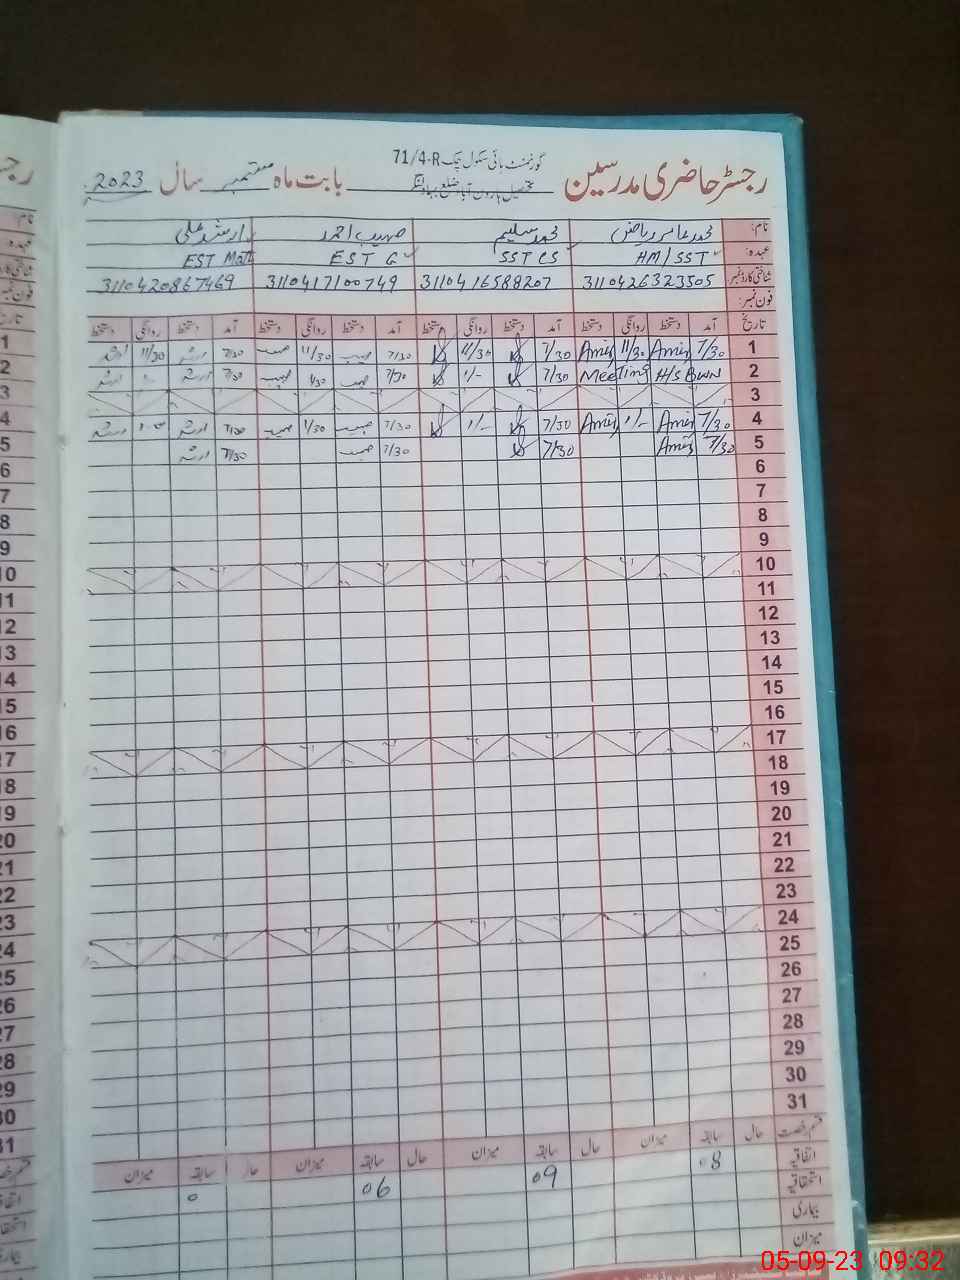 گورنمنٹ ہائی سکول چک 71/4-R
رجسٹر حاضری مدرسین تحصیل ہارون آباد ضلع بہاولنگر بابت ماہ ستمبر سال 2023
نام: محمد عامر ریاض محمد سلیم صہیب احمد ارشد علی
عہدہ: HM/SST SST CS EST G EST Mat
شناختی کارڈ نمبر 3110426323505 3110416588207 3110417100749 3110420867469
فون نمبر:
تاریخ آمد دستخط روانگی دستخط آمد دستخط روانگی دستخط آمد دستخط روانگی دستخط آمد دستخط روانگی دستخط
1 7/30 Amir 11/30 Amir 7/30 11/30 7/30 صہیب 11/30 صہیب 7/30 ارشد 11/30 ارشد
2 Meeting H/S BWN 7/30 1/- 7/30 صہیب 1/30 صہیب 7/30 ارشد ارشد
3
4 7/30 Amir 1/- Amir 7/30 1/- 7/30 صہیب 1/30 صہیب 7/30 ارشد ارشد
5 7/30 Amir 7/30 7/30 صہیب 7/30 ارشد
6
7
8
9
10
11
12
13
14
15
16
17
18
19
20
21
22
23
24
25
26
27
28
29
30
31
قسم رخصت حال سابقہ میزان حال سابقہ میزان حال سابقہ میزان حال سابقہ میزان
اتفاقیہ 08 09 06 0
استحقاقیہ
بیماری
میزان
05-09-23 09:32